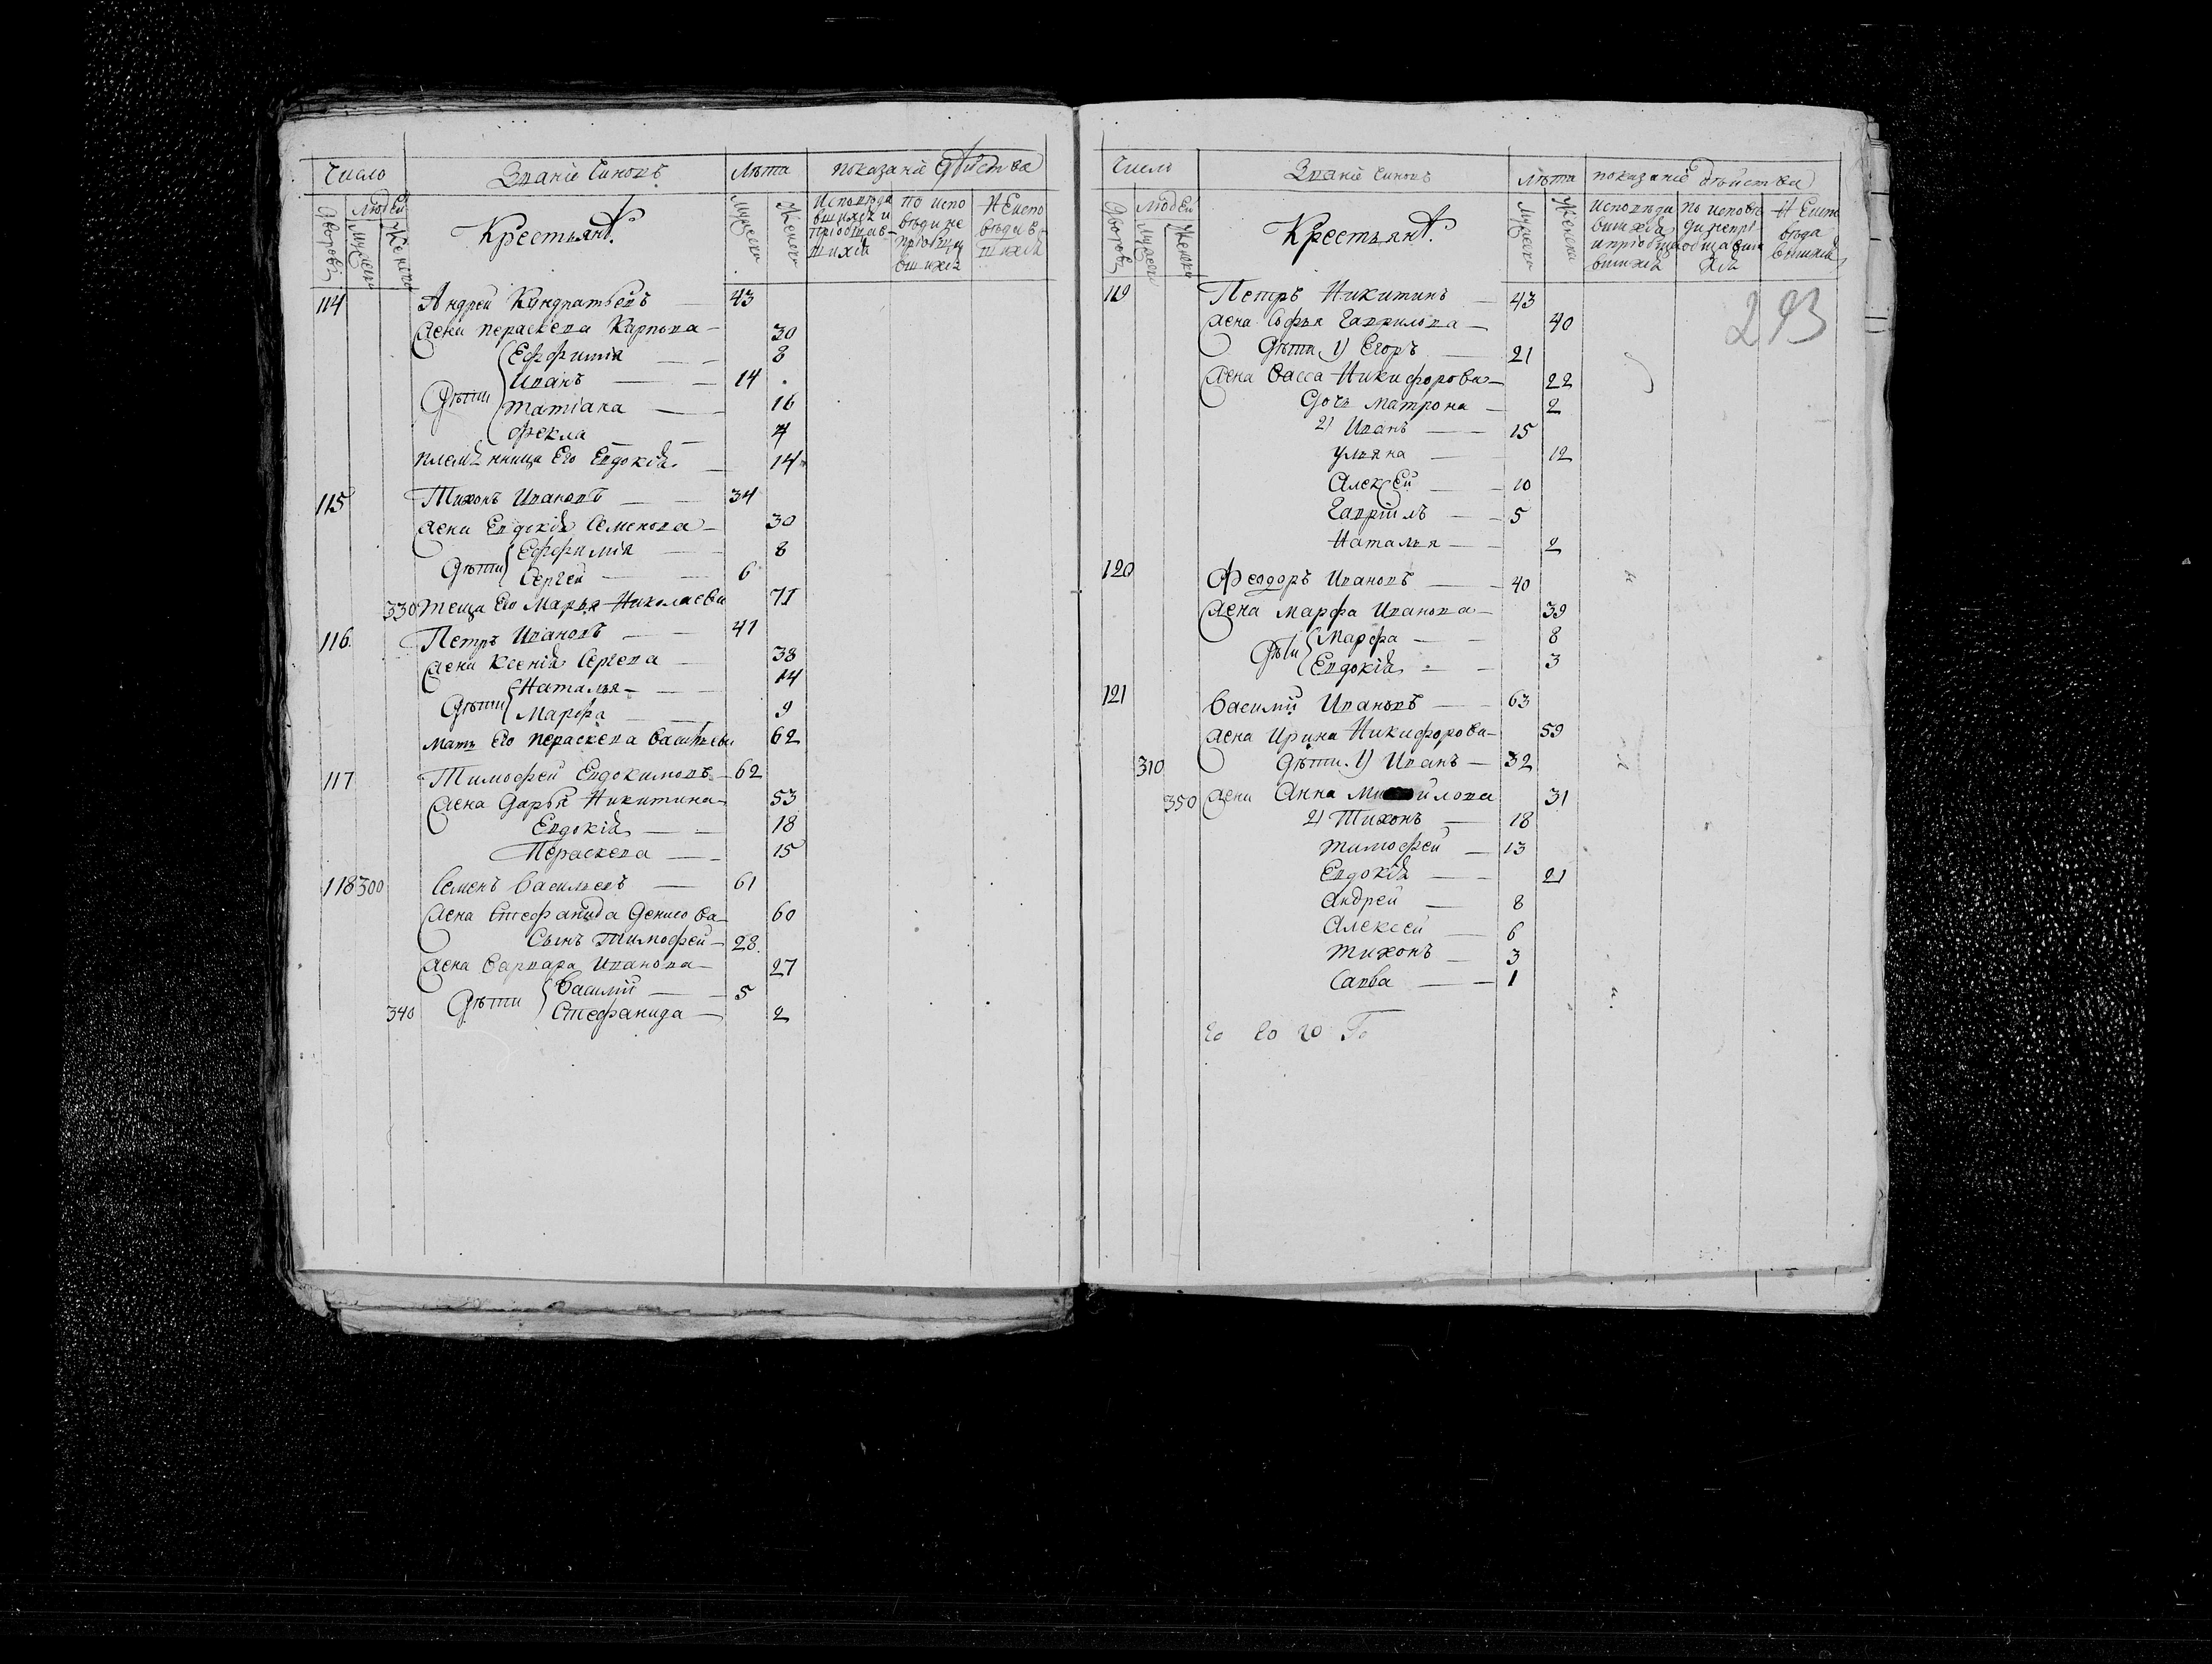 Число Званіе Чиновъ Лѣта показаніе дѣйства
Дворовъ Людей Мужеска Женска Крестьянъ. Мужеска Женска Исповѣдавшихся и пріобщавшихся по исповѣди не пріобщившихся Не исповѣдавшихся
114 Андрей Кандратьевъ — 43
Жена Пераскева Карпова — 30
Дѣти Ефримія — — 8
Иванъ — — 14
Татіана — — 16
Фекла — — 7
племѣнница Его Евдокія — 14
115 Тихонъ Ивановъ — — 34
Жена Евдокія Семенова — 30
Дѣти Ефримія — — 8
Сергей — — 6
330 теща Его Марья Николаева 71
116 Петръ Ивановъ — — 41
Жена Ксенія Сергева — 38
Дѣти Наталья — — 14
Марфа — — 9
Мать Его Пераскева Васильева 62
117 Тимофей Евдокимовъ — 62
Жена Дарья Никитина — 53
Евдокія — — 18
Пераскева — — 15
118 300 Семенъ Васильевъ — 61
Жена Стефанида Денисова — 60
Сынъ Тимофей — 28
Жена Варвара Иванова — 27
Дѣти Василій — — 5
340 Стефанида — 2
Число Званіе Чиновъ Лѣта показаніе дѣйства
Дворовъ Людей Мужеска Женска Крестьянъ. Мужеска Женска Исповѣдавшихся и пріобщавшихся По исповѣди непріобщавшихся Не исповѣдавшихся
293
119 Петръ Никитинъ — 43
Жена Софья Гаврилова — 40
Дѣти 1) Егоръ — 21
Жена Васса Никифорова — 22
Дочь Матрона — 2
2) Иванъ — — 15
Ульяна — 12
Алексѣй — — 10
Гавріилъ — — 5
Наталья — — 2
120 Феодоръ Ивановъ — — 40
Жена Марфа Иванова — 39
Дѣти Марфа — — 8
Евдокія — — 3
121 Василій Ивановъ — — 63
Жена Ирина Никифорова — 59
310 Дѣти. 1) Иванъ — 32
350 Жена Анна Михайлова 31
2) Тихонъ — 18
Тимофей — 13
Евдокія — — 21
Андрей — 8
Алексей — 6
Тихонъ — 3
Савва — — 1